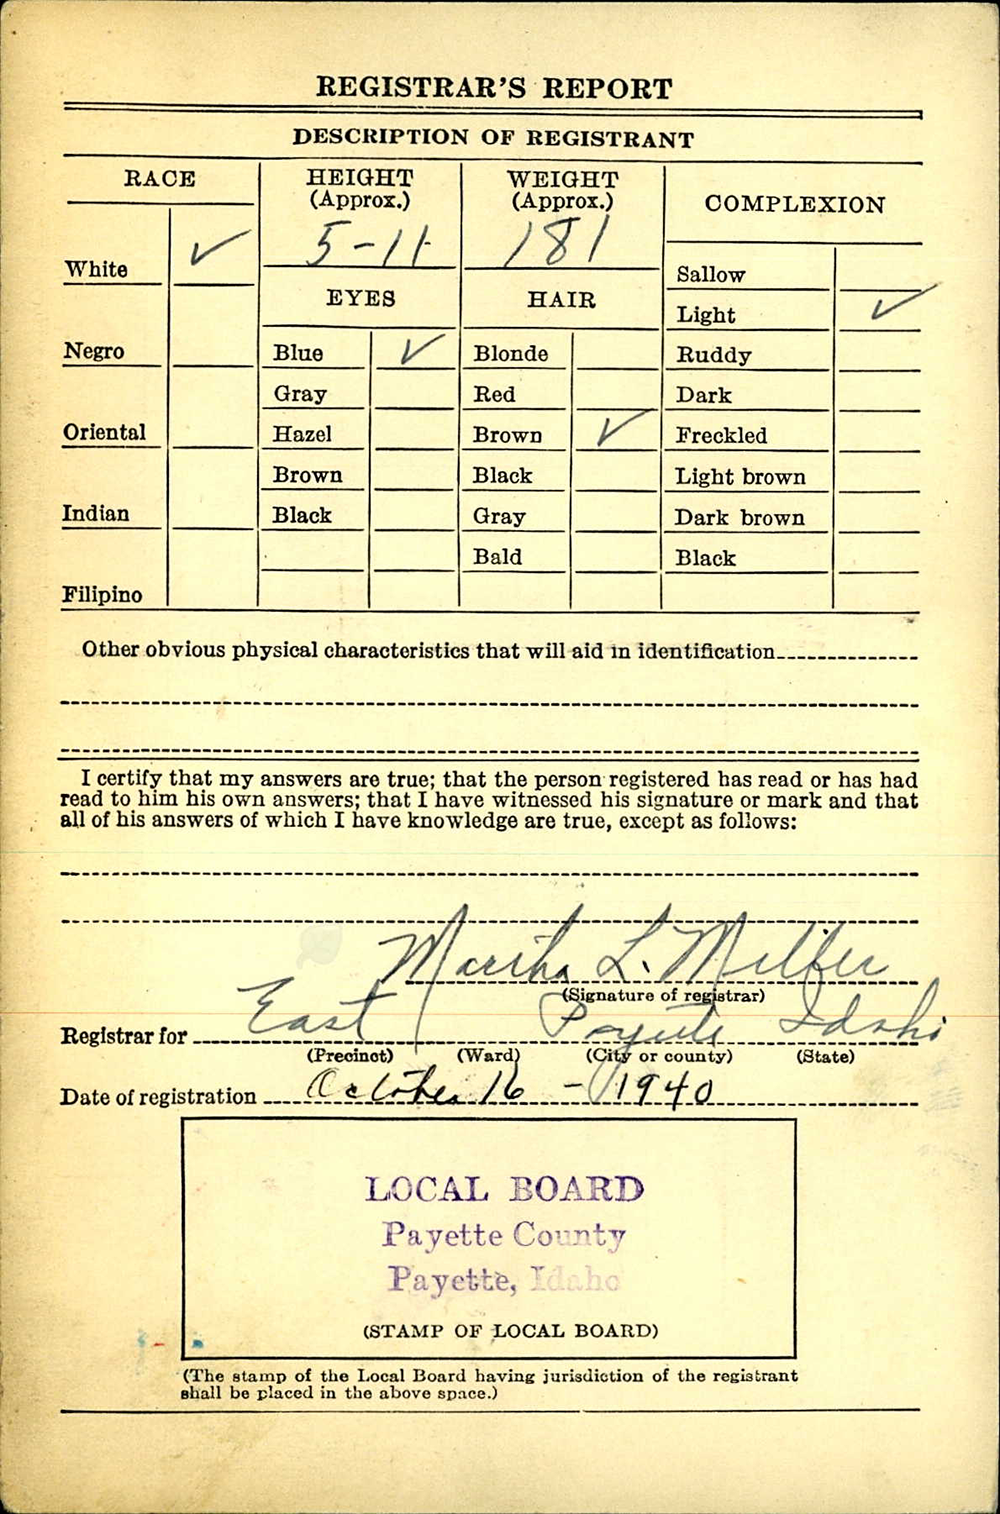 REGISTRAR'S REPORT
DESCRIPTION OF REGISTRANT
RACE
HEIGHT
(Approx.)
5-11
WEIGHT
(Approx.)
181
COMPLEXION
White ✓
Negro
Oriental
Indian
Filipino
EYES
Blue ✓
Gray
Hazel
Brown
Black
HAIR
Blonde
Red
Brown ✓
Black
Gray
Bald
Sallow
Light ✓
Ruddy
Dark
Freckled
Light brown
Dark brown
Black
Other obvious physical characteristics that will aid in identification
I certify that my answers are true; that the person registered has read or has had
read to him his own answers; that I have witnessed his signature or mark and that
all of his answers of which I have knowledge are true, except as follows:
Martha L. Miller
(Signature of registrar)
Registrar for East Payette Idaho
(Precinct) (Ward) (City or county) (State)
Date of registration October 16 - 1940
LOCAL BOARD
Payette County
Payette, Idaho
(STAMP OF LOCAL BOARD)
(The stamp of the Local Board having jurisdiction of the registrant
shall be placed in the above space.)